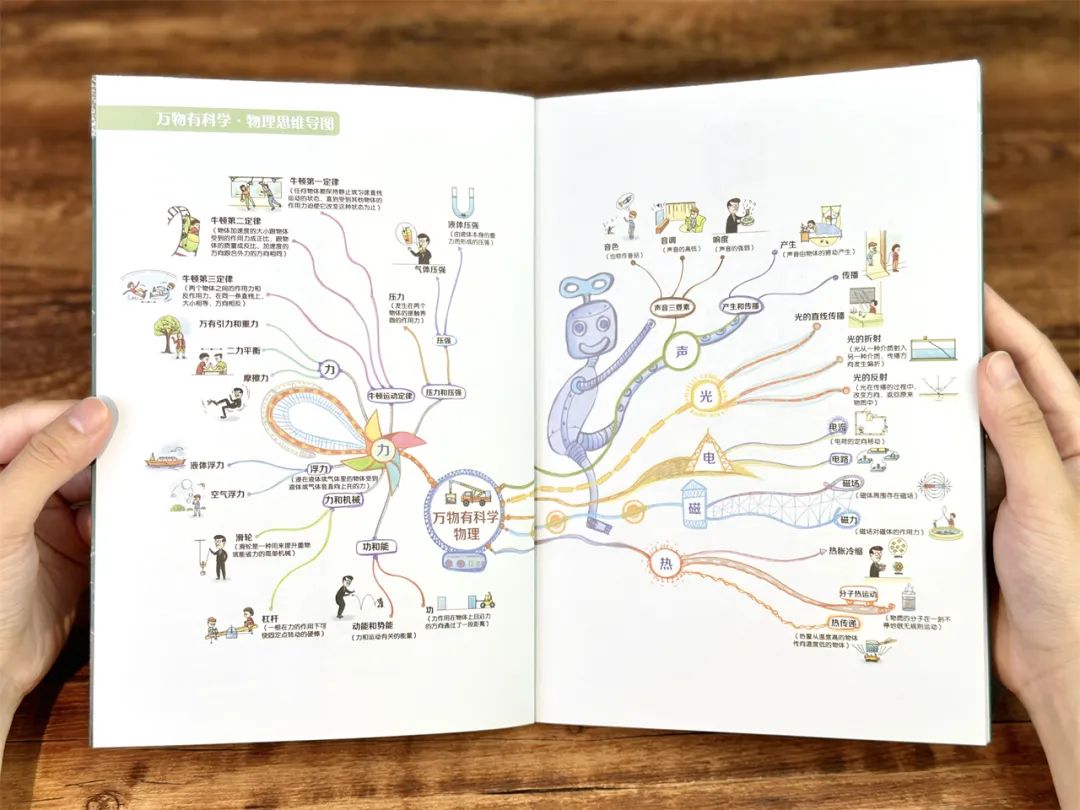 万物有科学·物理思维导图
牛顿第一定律
（任何物体都保持静止或匀速直线
运动的状态，直到受到其他物体的
作用力迫使它改变这种状态为止）
牛顿第二定律
（物体加速度的大小跟物体
受到的作用力成正比，跟物
体的质量成反比，加速度的
方向跟合外力的方向相同）
牛顿第三定律
（两个物体之间的作用力和
反作用力，在同一条直线上，
大小相等，方向相反）
万有引力和重力
二力平衡
摩擦力
力
牛顿运动定律
液体压强
（由液体本身的重
力而形成的压强）
气体压强
压力
（发生在两个
物体的接触表
面的作用力）
压强
压力和压强
力
液体浮力
空气浮力
浮力
（浸在液体或气体里的物体受到
液体或气体竖直向上托的力）
力和机械
滑轮
（滑轮是一种用来提升重物
或能省力的简单机械）
杠杆
（一根在力的作用下可
绕固定点转动的硬棒）
功和能
动能和势能
（力和运动有关的能量）
功
（力作用在物体上且沿力
的方向通过了一段距离）
万物有科学
物理
音色
（也称作音品）
音调
（声音的高低）
响度
（声音的强弱）
产生
（声音由物体的振动产生）
传播
声音三要素
产生和传播
声
光的直线传播
光的折射
（光从一种介质射入
另一种介质，传播方
向发生偏折）
光的反射
（光在传播的过程中，
改变方向，返回原来
物质中）
光
电流
（电荷的定向移动）
电路
电
磁场
（磁体周围存在磁场）
磁力
（磁场对磁体的作用力）
磁
热胀冷缩
分子热运动
（物质的分子在一刻不
停地做无规则运动）
热传递
（热量从温度高的物体
传向温度低的物体）
热